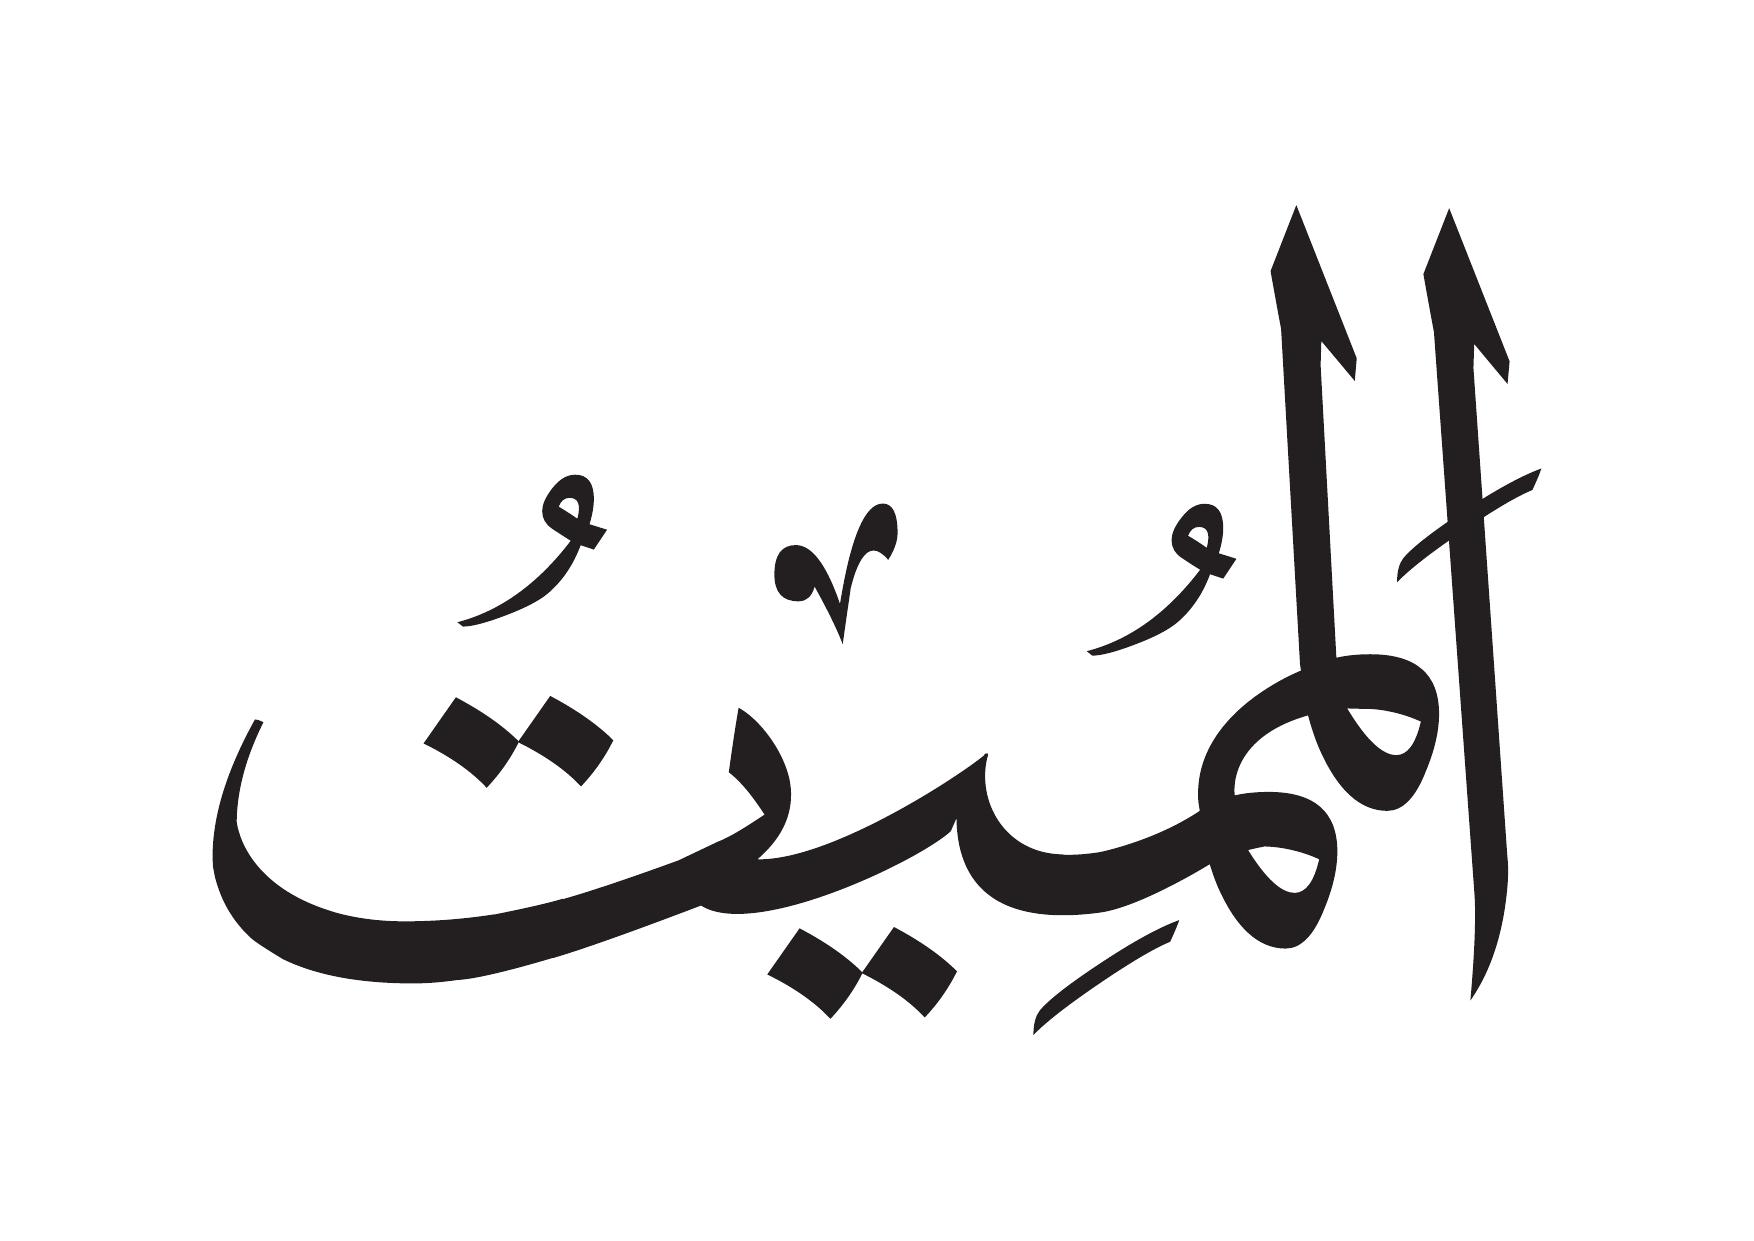 اَلمُمِيتُ